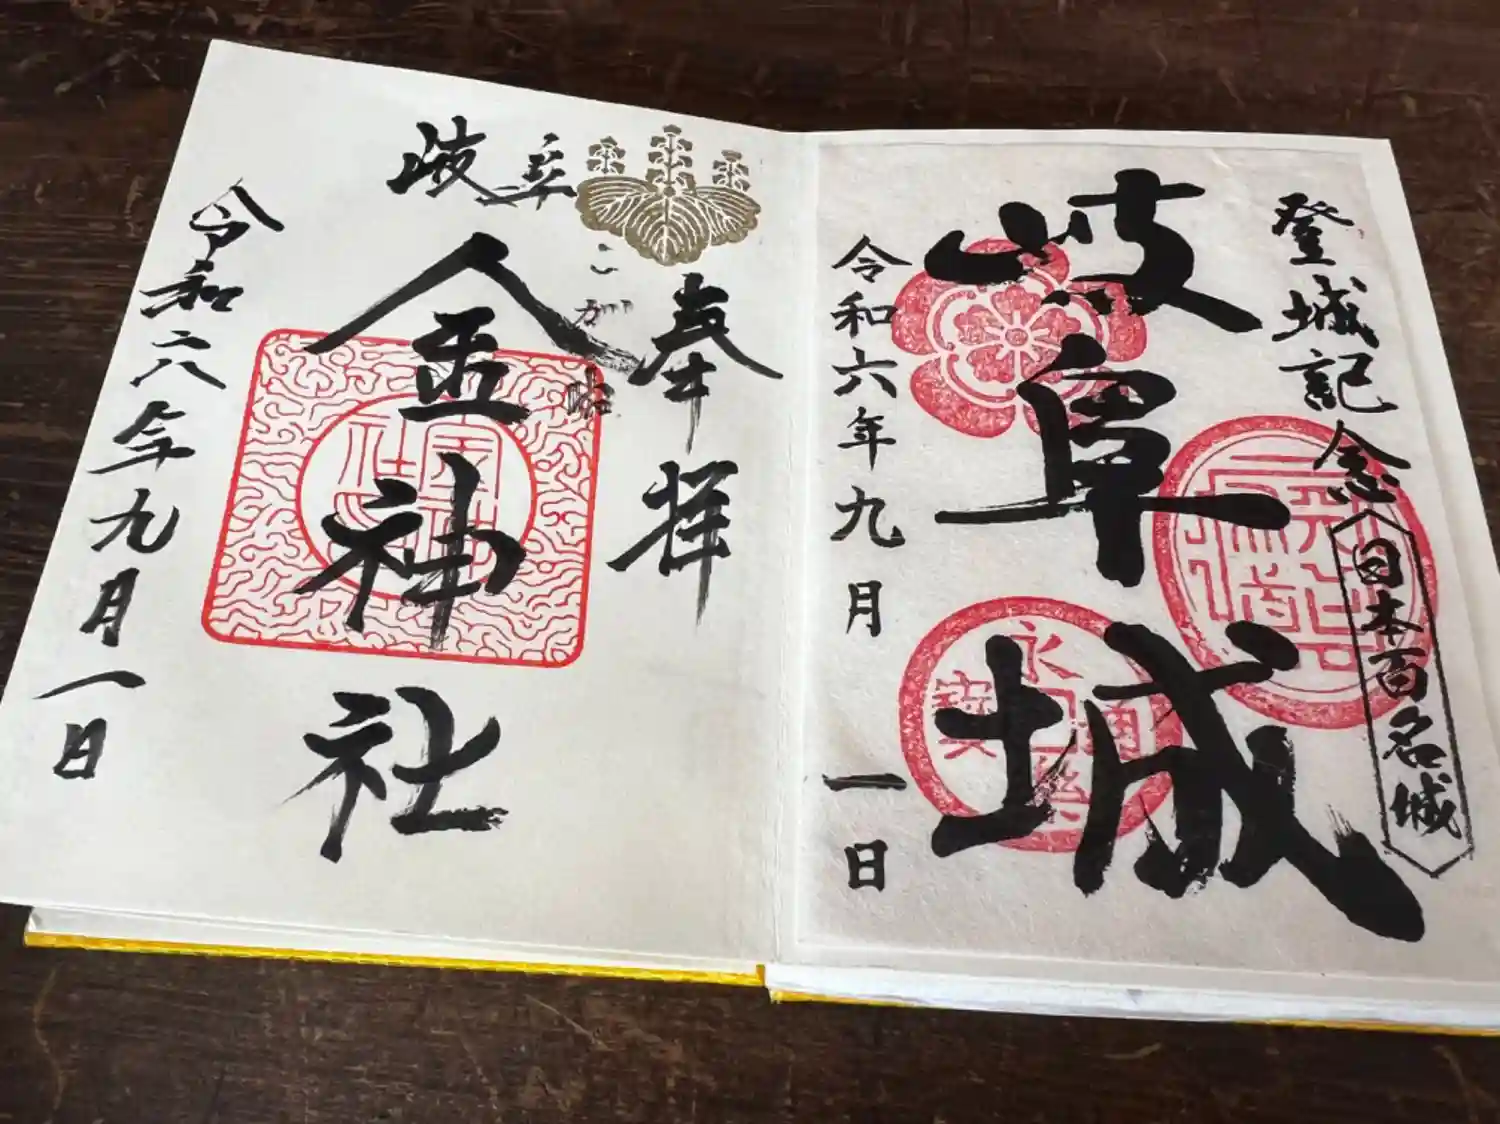 登城記念
日本百名城
岐阜城
令和六年九月一日
永
奉拝
岐阜
こがね
金神社
令和六年九月一日